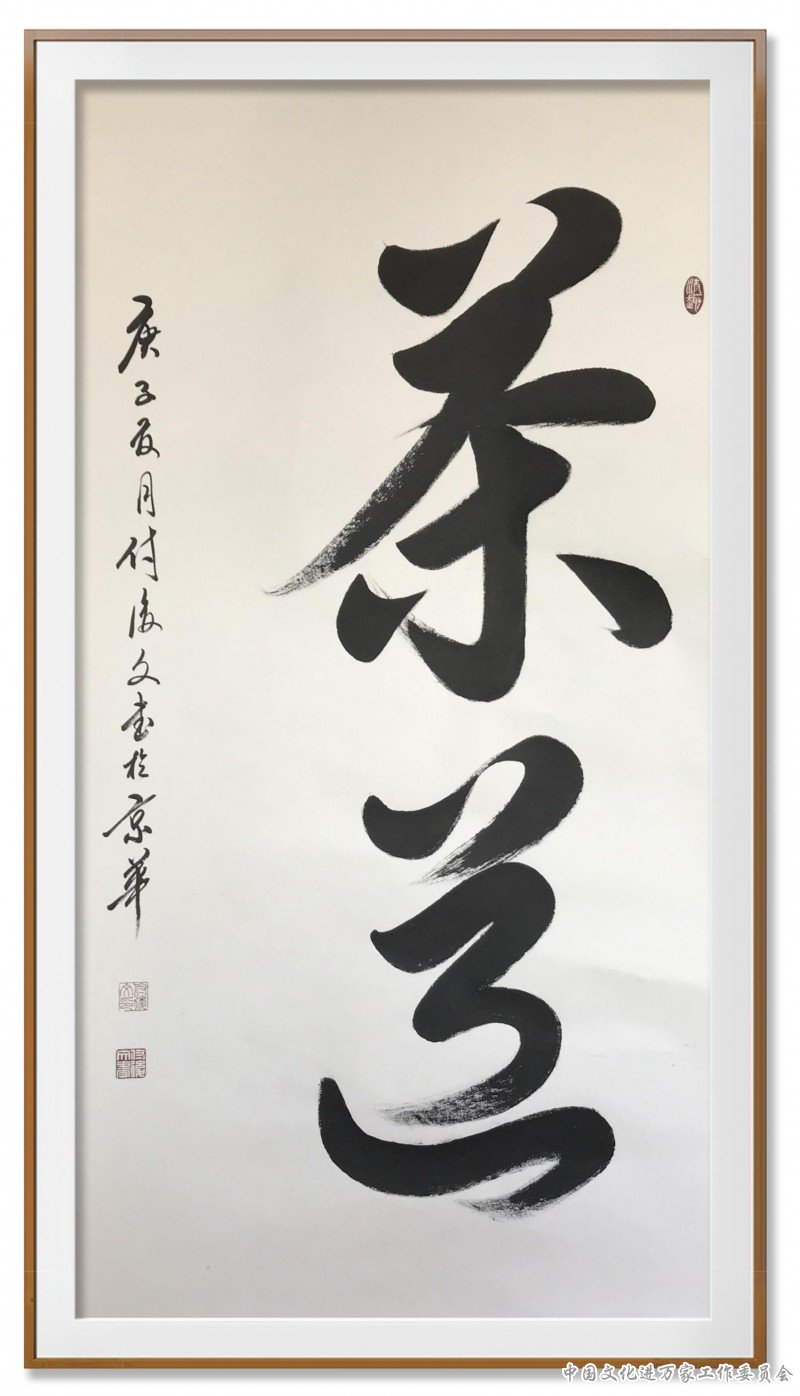 茶道
庚子夏月付俊文书於京华
中国文化进万家工作委员会